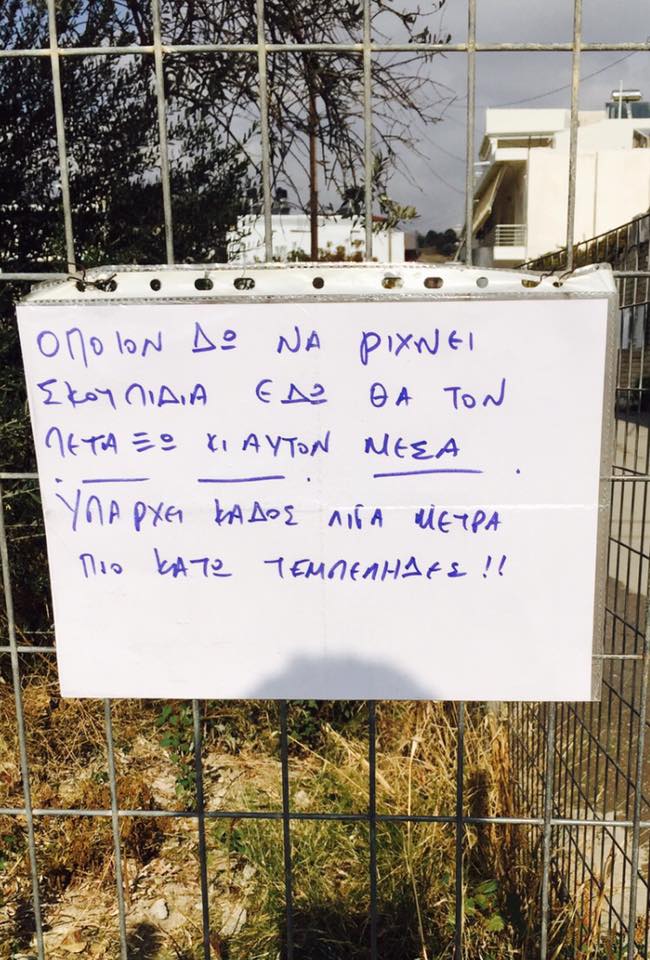 ΟΠΟΙΟΝ ΔΩ ΝΑ ΡΙΧΝΕΙ
ΣΚΟΥΠΙΔΙΑ ΕΔΩ ΘΑ ΤΟΝ
ΠΕΤΑΞΩ ΚΙ ΑΥΤΟΝ ΜΕΣΑ.
ΥΠΑΡΧΕΙ ΚΑΔΟΣ ΛΙΓΑ ΜΕΤΡΑ
ΠΙΟ ΚΑΤΩ ΤΕΜΠΕΛΗΔΕΣ!!